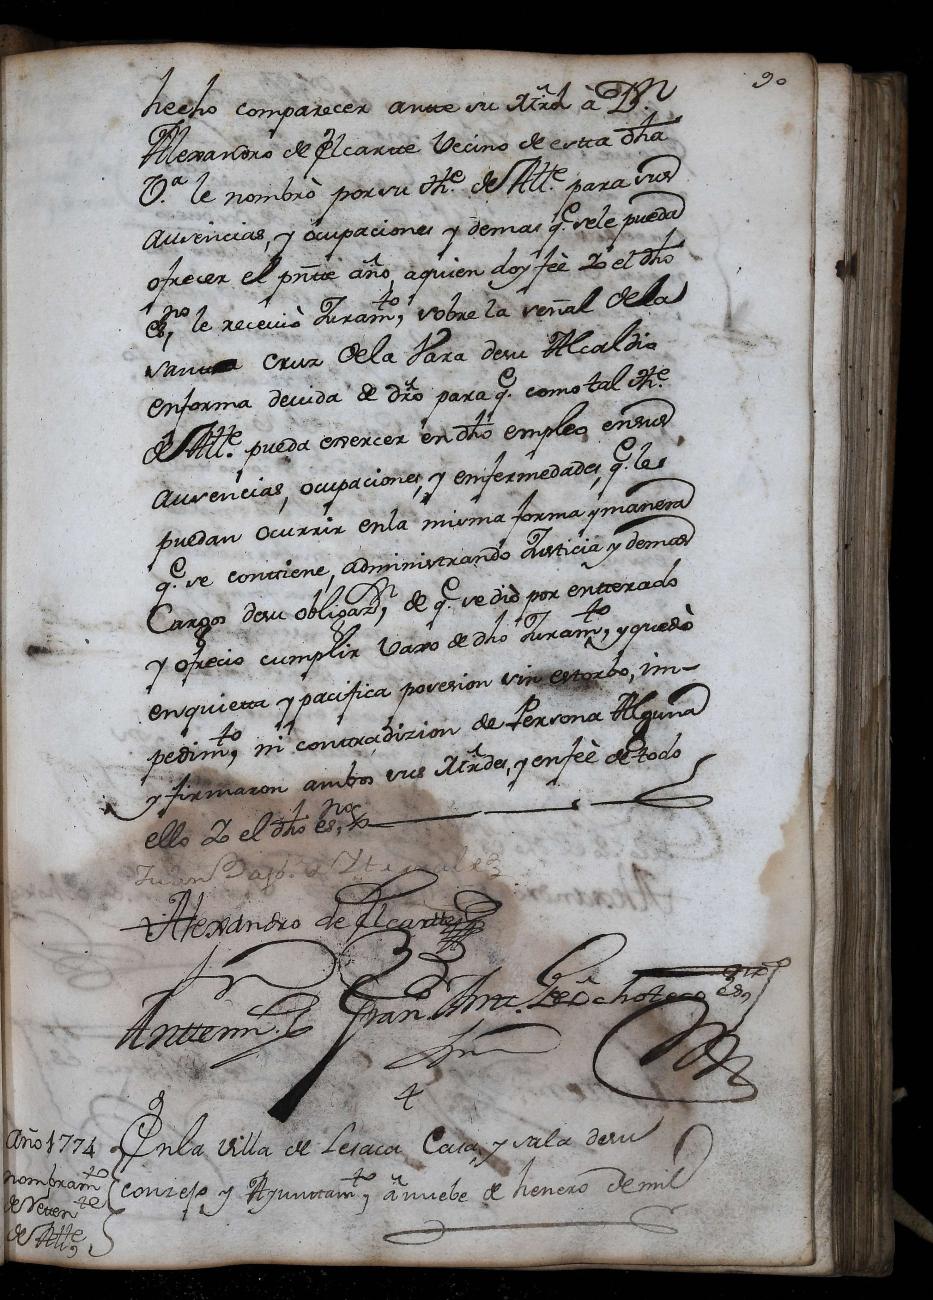 90
hecho comparecer antte su Mrd à Dn
Alexandro de Elcartte Vecino de estta dha
Va. le nombrò por su the. de Alle. para sus
ausencias, y ocupaciones y demas q.e sele pueda
ofrecer el pntte año, aquien doy feè Yo el dho
esno, le recevio Juramto, sobre la señal dela
santta cruz dela Vara desu Alcaldia
enforma devida de dro para q.e como tal the.
de Alle. pueda exercer en dho empleo ensus
ausencias, ocupaciones, y emfermedades, q.e le
puedan ocurrir enla misma forma y manera
q.e se conttiene, administrando Justicia y demas
Cargos desu obligazn, de q.e se diò por entterado
y ofrecio cumplir vaxo de dho Juramto, y quedò
enquietta y pacifica posesion sin estorbo, im-
pedimto, ni contradizion de Persona Alguna
y firmaron ambos sus Mrdes, y enfeè de todo
ello Yo el dho esno
Juan Bapt.
Alexandro de Elcartte
Anttemi
Fran. Ant. de esno
4
Año 1774
nombramto
de Tenente
de Alle,
Enla villa de Lesaca Casa, y sala desu
consejo y Ayuntamto, à nuebe de henero de mil